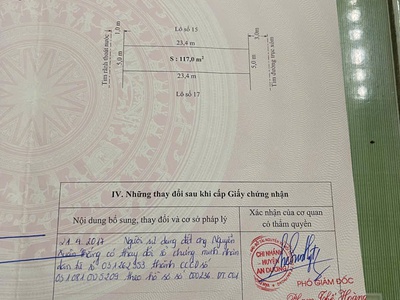 Lô số 15
23,4 m
1,0m
3,0m
Tim rãnh thoát nước
5,0 m
S : 117,0 m²
5,0 m
Tim đường trục xóm
23,4 m
Lô số 17
IV. Những thay đổi sau khi cấp Giấy chứng nhận
Nội dung bổ sung, thay đổi và cơ sở pháp lý
Xác nhận của cơ quan
có thẩm quyền
21.4.2017 Người sử dụng đất ông Nguyễn
có thay đổi số chứng minh nhân
dân từ số 031262953 thành CCCD số
031081003209 theo hồ sơ số 000236.
CHI NHÁNH
HUYỆN
AN DƯƠNG
PHÓ GIÁM ĐỐC